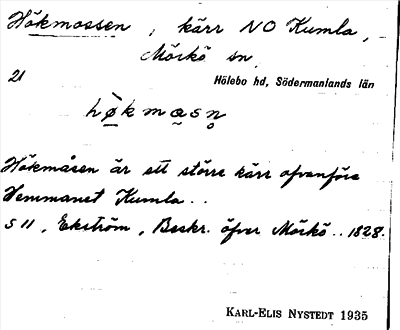 Hökmossen, kärr NO Kumla,
Mörkö sn.
21 Hölebo hd, Södermanlands län
hø̀kmɑsn̥
Hökmåsen är ett större kärr ofvanföre
Hemmanet Kumla..
S 11, Ekström, Beskr. öfver Mörkö.. 1828.
KARL-ELIS NYSTEDT 1935